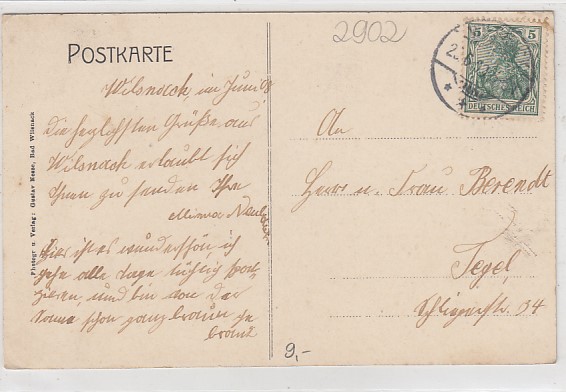 2902
POSTKARTE
5
DEUTSCHES REICH
Wilsnack, im Juni 08
Die herzlichsten Grüße aus
Wilsnack erlaubt sich
Ihnen zu senden Ihre
Minna
Hier ist es wunderschön, ich
gehe alle Tage tüchtig spa-
zieren, und bin von der
Sonne schon ganz braun ge
brannt
An
Herrn u. Frau Berendt
Tegel,
Schlieperstr. 34
9,-
Photogr u. Verlag: Gustav Hesse, Bad Wilsnack